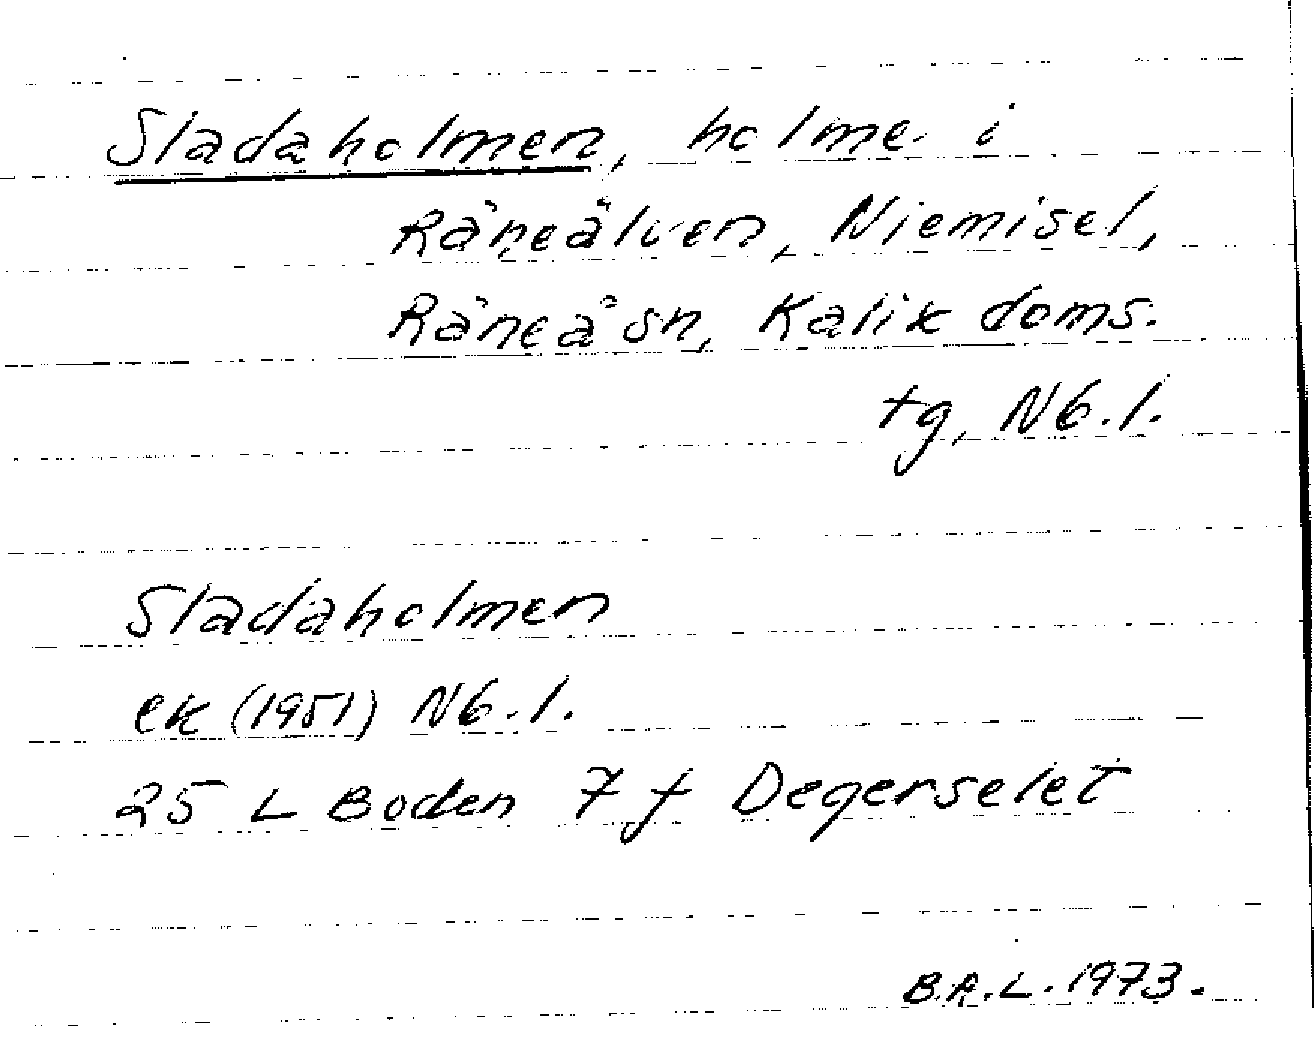 Sladaholmen, holme i
Råneälven, Niemisel,
Råneå sn, Kalix doms.
tg, Nb. l.
Sladaholmen
ek (1951) Nb. l.
25 L Boden 7 f Degerselet
B.A.L. 1973.